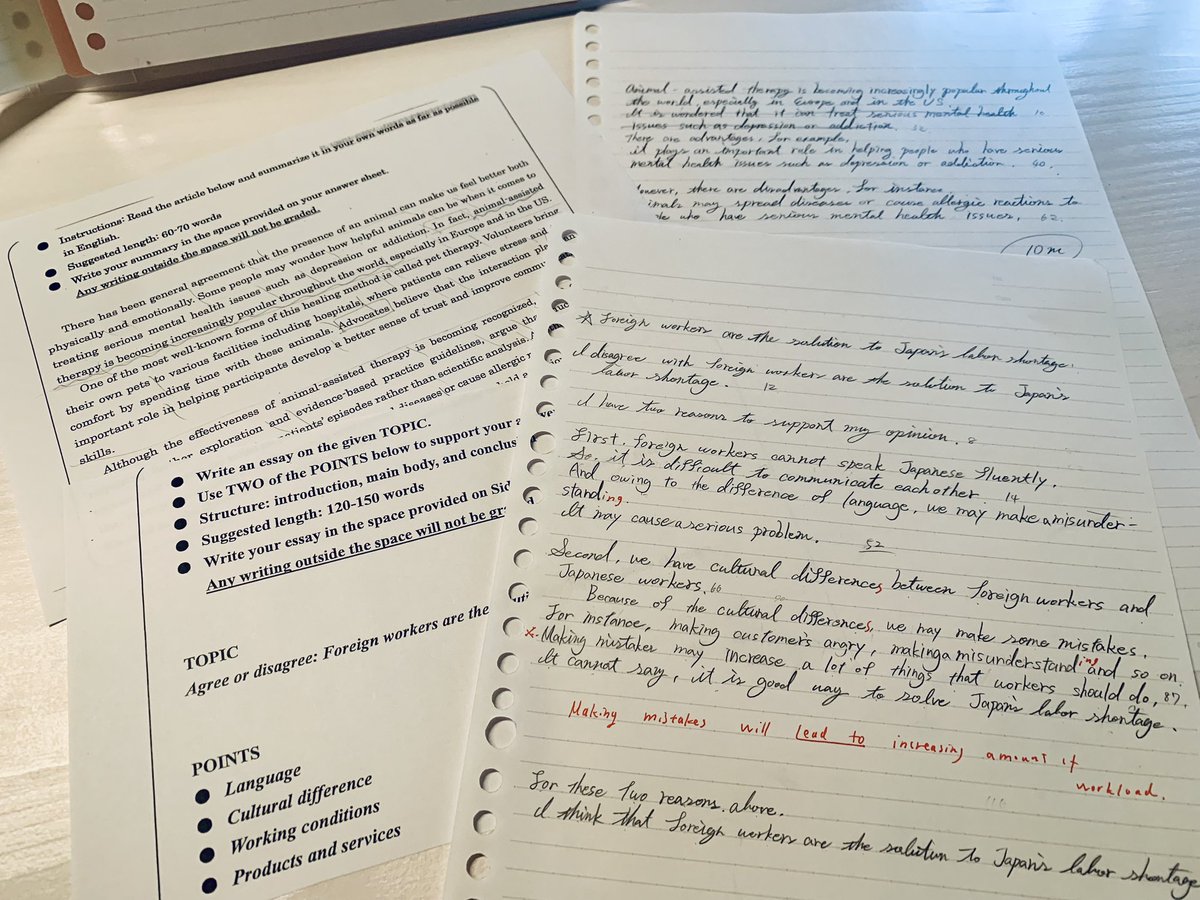 Instructions: Read the article below and summarize it in your own words as far as possible
in English.
Suggested length: 60-70 words
Write your summary in the space provided on your answer sheet.
Any writing outside the space will not be graded.
There has been general agreement that the presence of an animal can make us feel better both
physically and emotionally. Some people may wonder how helpful animals can be when it comes to
treating serious mental health issues such as depression or addiction. In fact, animal-assisted
therapy is becoming increasingly popular throughout the world, especially in Europe and in the US.
One of the most well-known forms of this healing method is called pet therapy. Volunteers bring
their own pets to various facilities including hospitals, where patients can relieve stress and
comfort by spending time with these animals. Advocates believe that the interaction
important role in helping participants develop a better sense of trust and improve
skills.
Although the effectiveness of animal-assisted therapy is becoming recognized,
exploration and evidence-based practice guidelines, argue
episodes rather than scientific analysis.
diseases or cause allergic
Write an essay on the given TOPIC.
Use TWO of the POINTS below to support your
Structure: introduction, main body, and
Suggested length: 120-150 words
Write your essay in the space provided on
Any writing outside the space will not be
TOPIC
Agree or disagree: Foreign workers are the
POINTS
Language
Cultural difference
Working conditions
Products and services
Animal-assisted therapy is becoming increasingly popular throughout
the world, especially in Europe and in the US.
It is wondered that it can treat serious mental health
issues such as depression or addiction. 32
There are advantages. For example,
it plays an important role in helping people who have serious
mental health issues such as depression or addiction. 40.
there are disadvantages. For instance,
may spread diseases or cause allergic reactions to
who have serious mental health issues. 62.
10m
☆ Foreign workers are the solution to Japan's labor shortage.
I disagree with foreign workers are the solution to Japan's
labor shortage. 12
I have two reasons to support my opinion. 8
First, foreign workers cannot speak Japanese fluently.
So, it is difficult to communicate each other. 14
And owing to the difference of language, we may make a misunder-
standing.
It may cause a serious problem. 52
Second, we have cultural differences between foreign workers and
Japanese workers. 66
Because of the cultural differences, we may make some mistakes.
For instance, making customers angry, making a misunderstanding and so on.
×. Making mistakes may increase a lot of things that workers should do, 87.
It cannot say, it is good way to solve Japan's labor shortage.
Making mistakes will lead to increasing amount of
workload.
For these two reasons above,
I think that foreign workers are the solution to Japan's labor shortage